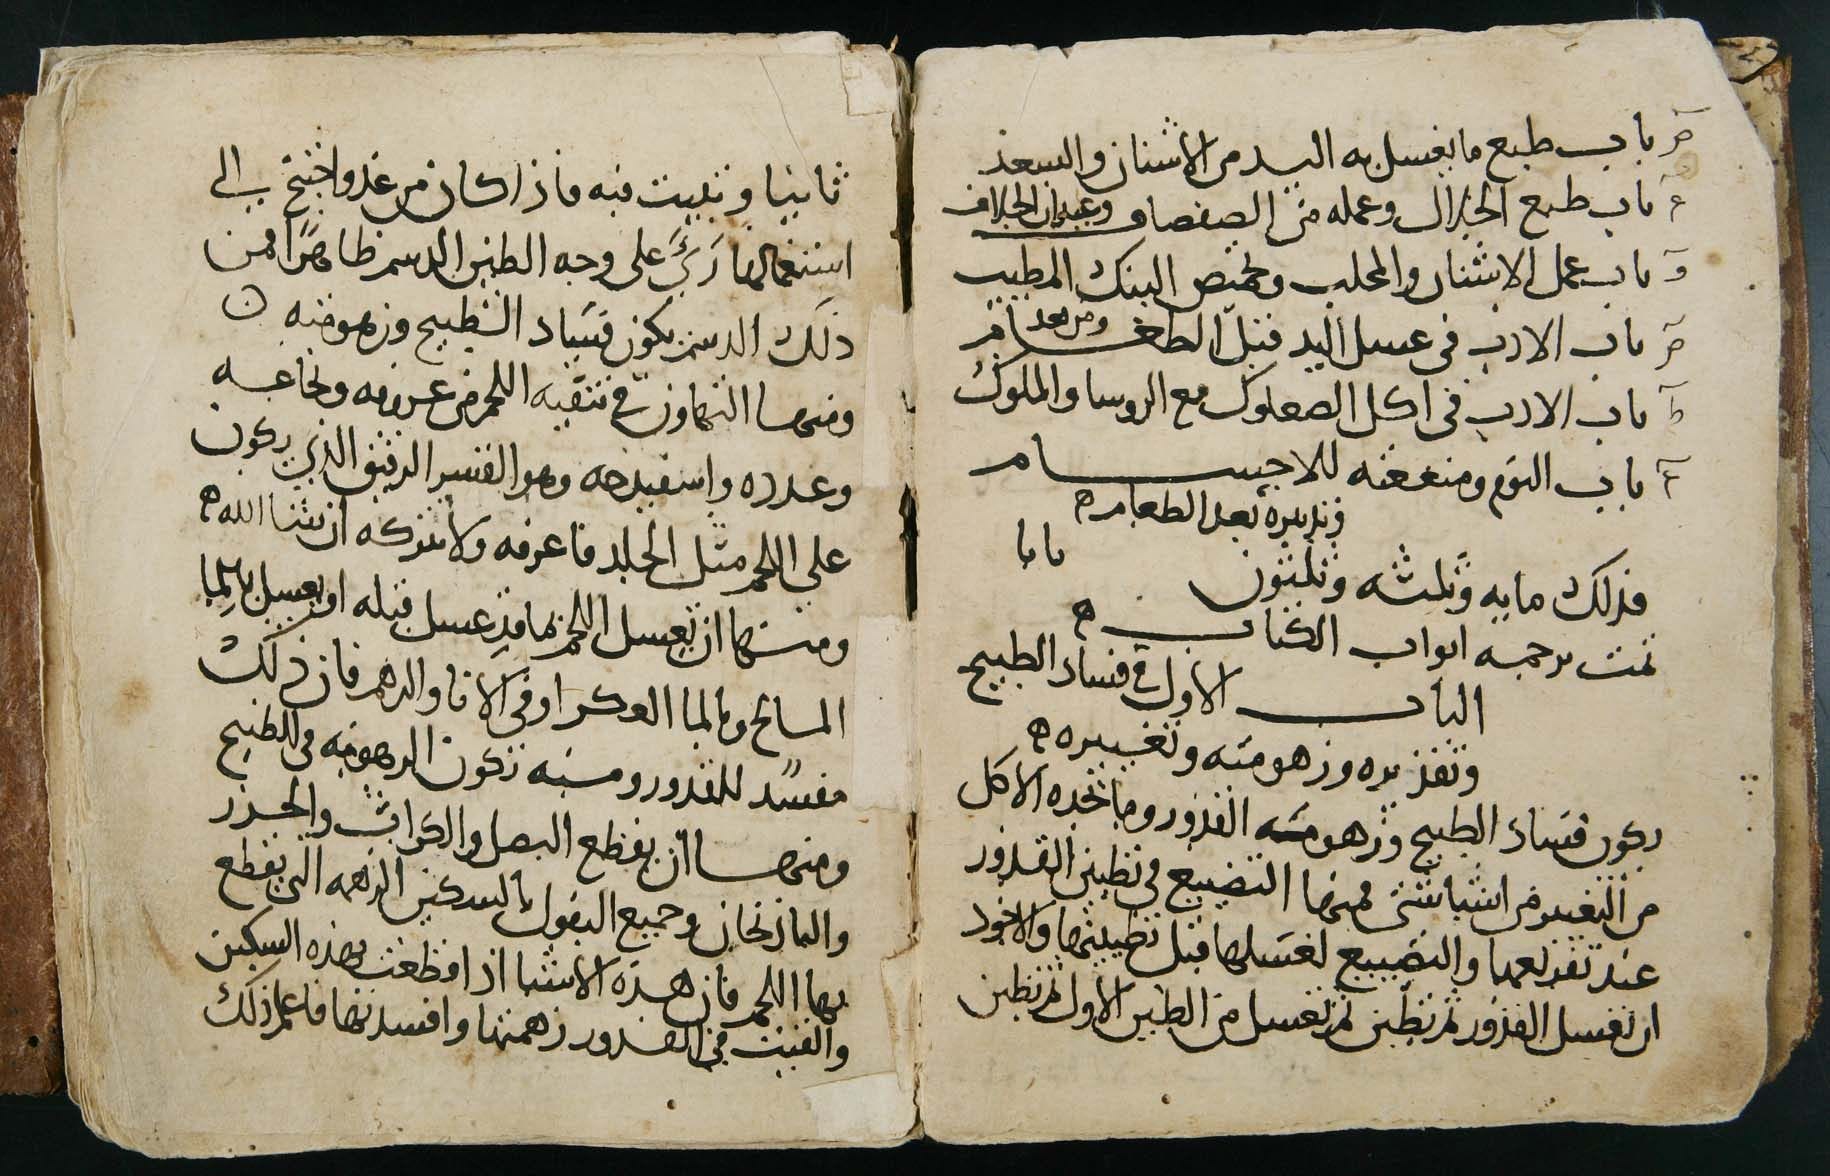 باب طبع ما يغسل به اليد من الاشنان والسعد
باب طبع الخلال وعمله من الصفصاف وعيدان الخلاف
باب عمل الاشنان والمحلب وتحميص البنك المطيب
باب الادب في غسل اليد قبل الطعام ومن بعد
باب الادب في اكل الصعلوك مع الروسا والملوك
باب النوم ومنفعته للاجسام
وتدبيره بعد الطعام ه
فذلك مايه وثلثه وثلثون بابا
تمت ترجمه ابواب الكتاب ه
الباب الاول في فساد الطبيخ
وتقذيره وزهومته وتغييره ه
يكون فساد الطبيخ وزهومته القدور وما تجده الاكل
من التغيير من اشيا شتى فمنها التضييع في تطيين القدور
عند تقذيعها والتضييع لغسلها قبل تطيينها والاجود
ان تغسل القدور ثم تطين ثم تغسل من الطين الاول ثم تطين
ثانيا وتبيت فيه فاذا كان من غد واحتيج الى
استعمالها رئي على وجه الطين الدسم ظاهرا فمن
ذلك الدسم يكون فساد الطبيخ وزهومته
ومنها التهاون في تنقيه اللحم من عروقه ونخاعه
وغدده واسفيدجه وهو القشر الرقيق الذي يكون
على اللحم مثل الجلد فاعرفه ولا تتركه ان شا الله ه
ومنها ان يغسل اللحم بما قد غسل قبله او يغسل بالما
المالح وبالما العكر او في الانا والدهم فان ذلك
مفسد للقدور ومنه تكون الزهومه في الطبيخ
ومنها ان يقطع البصل والكراث والجزر
والباذنجان وجميع البقول بالسكين الزهمه التي يقطع
بها اللحم فان هذه الاشيا اذا قطعت بهذه السكين
والقيت في القدور زهمتها وافسدتها فاعلم ذلك